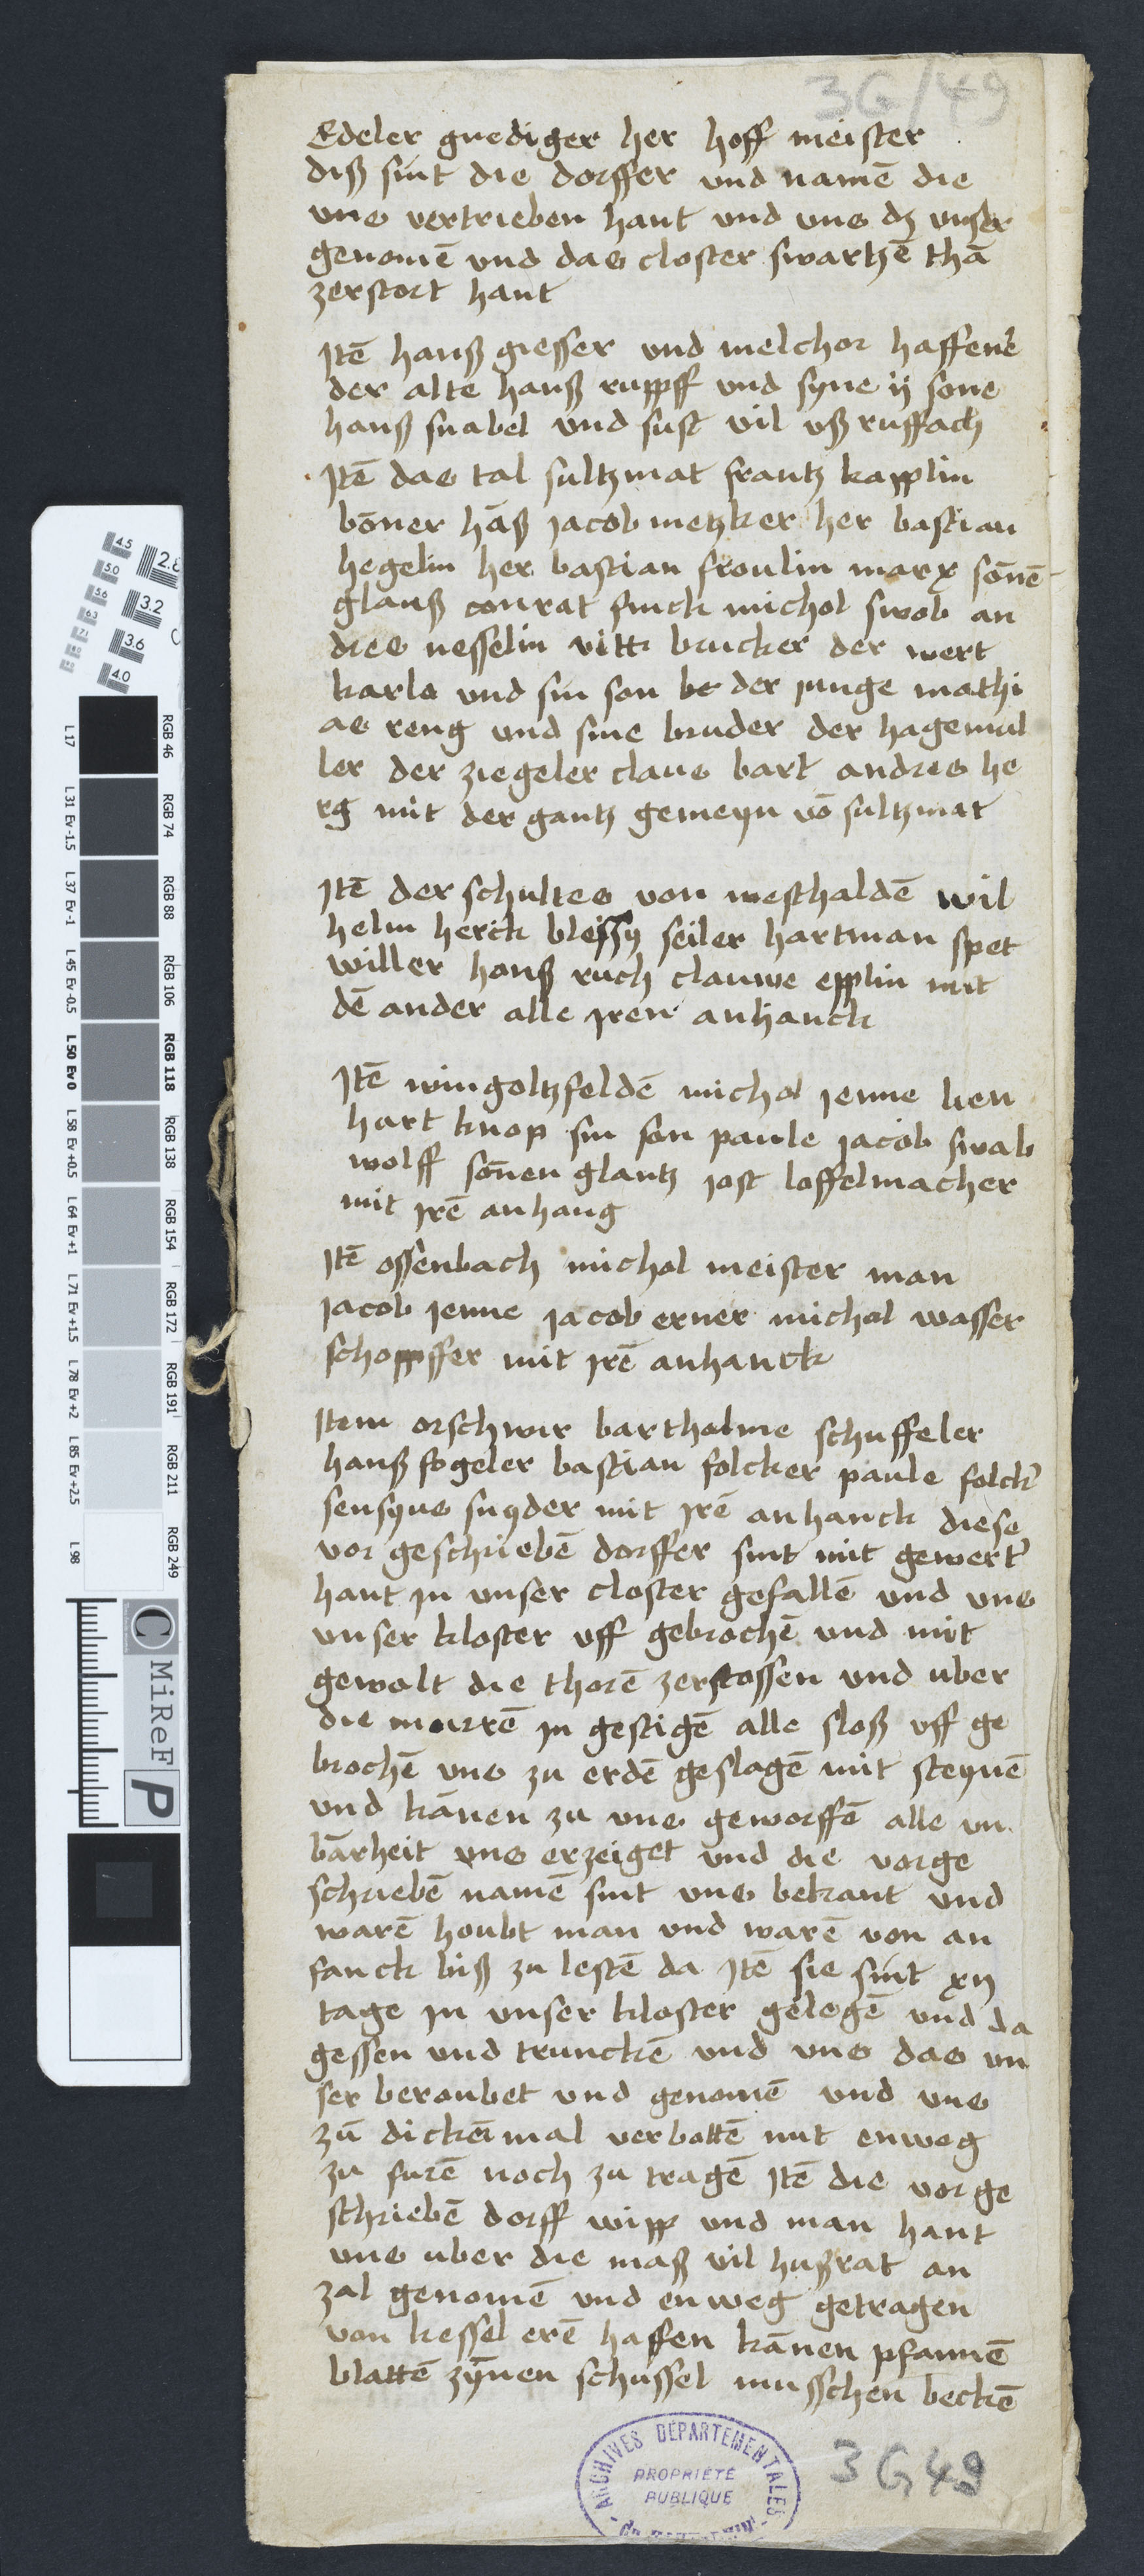 3G/49
Edeler gnediger her hoff meister
diß sint die dorffer und namē die
uns vertrieben hant und uns dz unser
genomē und das closter swartzē thā
zerstort hant
Itē hanß giesser und melchor haffenē
der alte hanß rupff und syne ij sone
hanß snabel und sust vil uß ruffach
Itē das tal sultzmat frantz kapplin
bōner hāß jacob metzker her bastian
hegelin her bastian froulin marx sōnē
glanß conrat finck michol swob an
dres nesselin vitt brucker der wert
karle und sin son der junge mathi
as reng und sine bruder der hagemul
ler der ziegeler claus bart andres he
rg mit der gantz gemeyn vō sultzmat
Itē der schultes von westhaldē wil
helm herck blessy seiler hartman spet
willer hanß ruch clauwe epplin mit
dē ander alle iren anhanck
Itē wingoltzfeldē michol jenne lien
hart knop sin son paule jacob swab
wolff sōnen glantz jost loffelmacher
mit irē anhang
Itē ossenbach michol meister man
jacob jenne jacob erner michol wasser
schoppffer mit irē anhanck
Item orschwir bartholme schuffeler
hanß fogeler bastian folcker paule folck'
sensyns snyder mit irē anhanck diese
vor geschriebē dorffer sint mit gewert'
hant in unser closter gefallē und uns
unser kloster uff gebrochē und mit
gewalt die thorē zerstossen und uber
die murrē in gestigē alle sloß uff ge
brochē uns zu erdē geslagē mit steynē
und kānen zu uns geworffē alle un
bārheit uns erzeiget und die vorge
schriebē namē sint uns bekant und
warē houbt man und warē von an
fanck biß zu lestē da Itē sie sint xij
tage in unser kloster gelegē und da
gessen und trunckē und uns das un
ser beroubet und genomē und uns
zū dickēmal verbottē nut enweg
zu furē noch zu tragē Itē die vorge
schriebē dorff wipp und man hant
uns uber die maß vil hußrat an
zal genomē und enweg getragen
von kessel erē haffen kānen pfannē
blattē zȳnen schussel musschen beckē
ARCHIVES DÉPARTEMENTALES
PROPRIÉTÉ
PUBLIQUE
3G49
4.5
5.0
5.6
6.3
2.8
3.2
3.6
4.0
L17 RGB 46
L31 Ev-1.5 RGB 74
L37 Ev-1 RGB 88
L45 Ev-0.5 RGB 106
L50 Ev0 RGB 118
L58 Ev+0.5 RGB 138
L64 Ev+1 RGB 154
L71 Ev+1.5 RGB 172
L78 Ev+2 RGB 191
L85 Ev+2.5 RGB 211
L98 RGB 249
C MiReF P